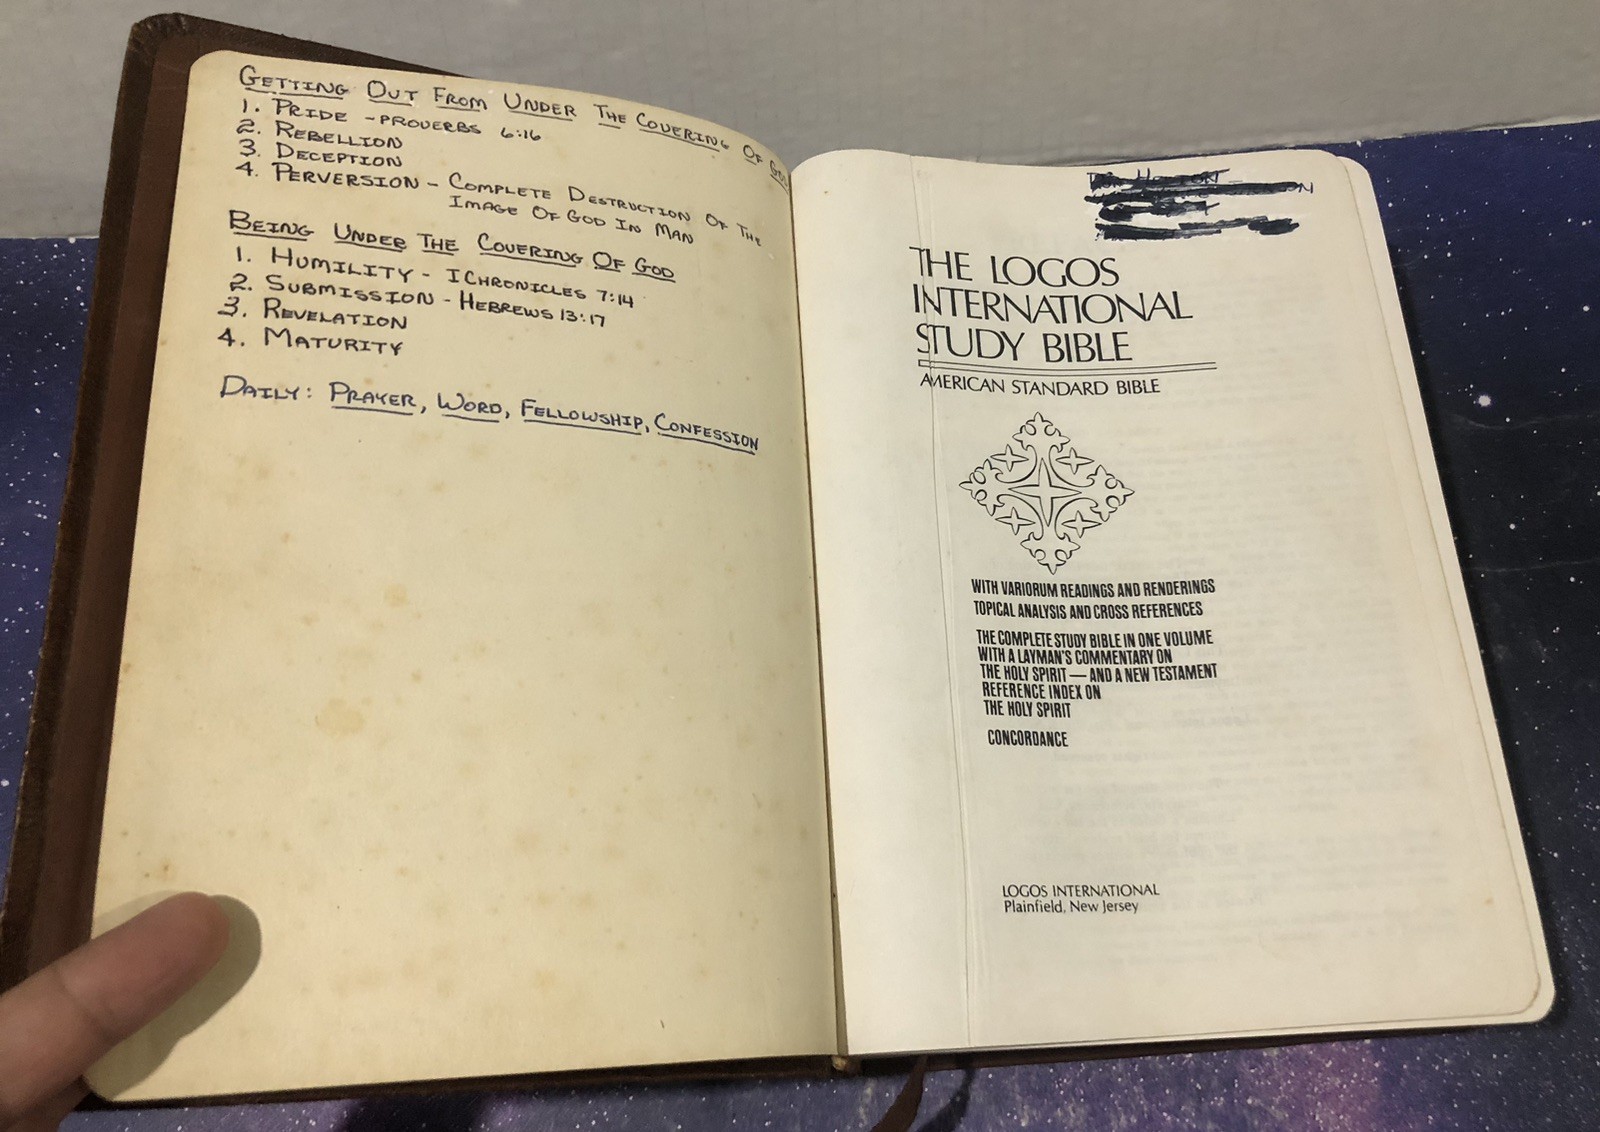 GETTING OUT FROM UNDER THE COVERING OF GOD
1. PRIDE - PROVERBS 6:16
2. REBELLION
3. DECEPTION
4. PERVERSION - COMPLETE DESTRUCTION OF THE
IMAGE OF GOD IN MAN
BEING UNDER THE COVERING OF GOD
1. HUMILITY - I CHRONICLES 7:14
2. SUBMISSION - HEBREWS 13:17
3. REVELATION
4. MATURITY
DAILY: PRAYER, WORD, FELLOWSHIP, CONFESSION
THE LOGOS
INTERNATIONAL
STUDY BIBLE
AMERICAN STANDARD BIBLE
WITH VARIORUM READINGS AND RENDERINGS
TOPICAL ANALYSIS AND CROSS REFERENCES
THE COMPLETE STUDY BIBLE IN ONE VOLUME
WITH A LAYMAN'S COMMENTARY ON
THE HOLY SPIRIT — AND A NEW TESTAMENT
REFERENCE INDEX ON
THE HOLY SPIRIT
CONCORDANCE
LOGOS INTERNATIONAL
Plainfield, New Jersey